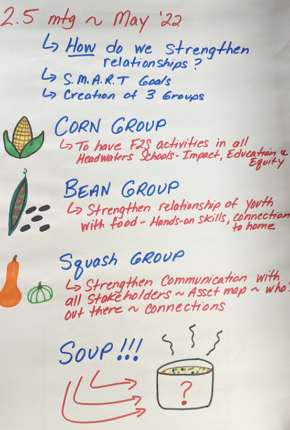 2.5 mtg ~ May '22
↳ How do we strengthen
relationships?
↳ S.M.A.R.T Goals
↳ Creation of 3 Groups
CORN GROUP
↳ To have F2S activities in all
Headwaters Schools - Impact, Education &
Equity
BEAN GROUP
↳ Strengthen relationship of youth
with food - Hands-on skills, connection
to home
Squash GROUP
↳ Strengthen Communication with
all Stakeholders ~ Asset map ~ who's
out there ~ connections
SOUP!!!
?